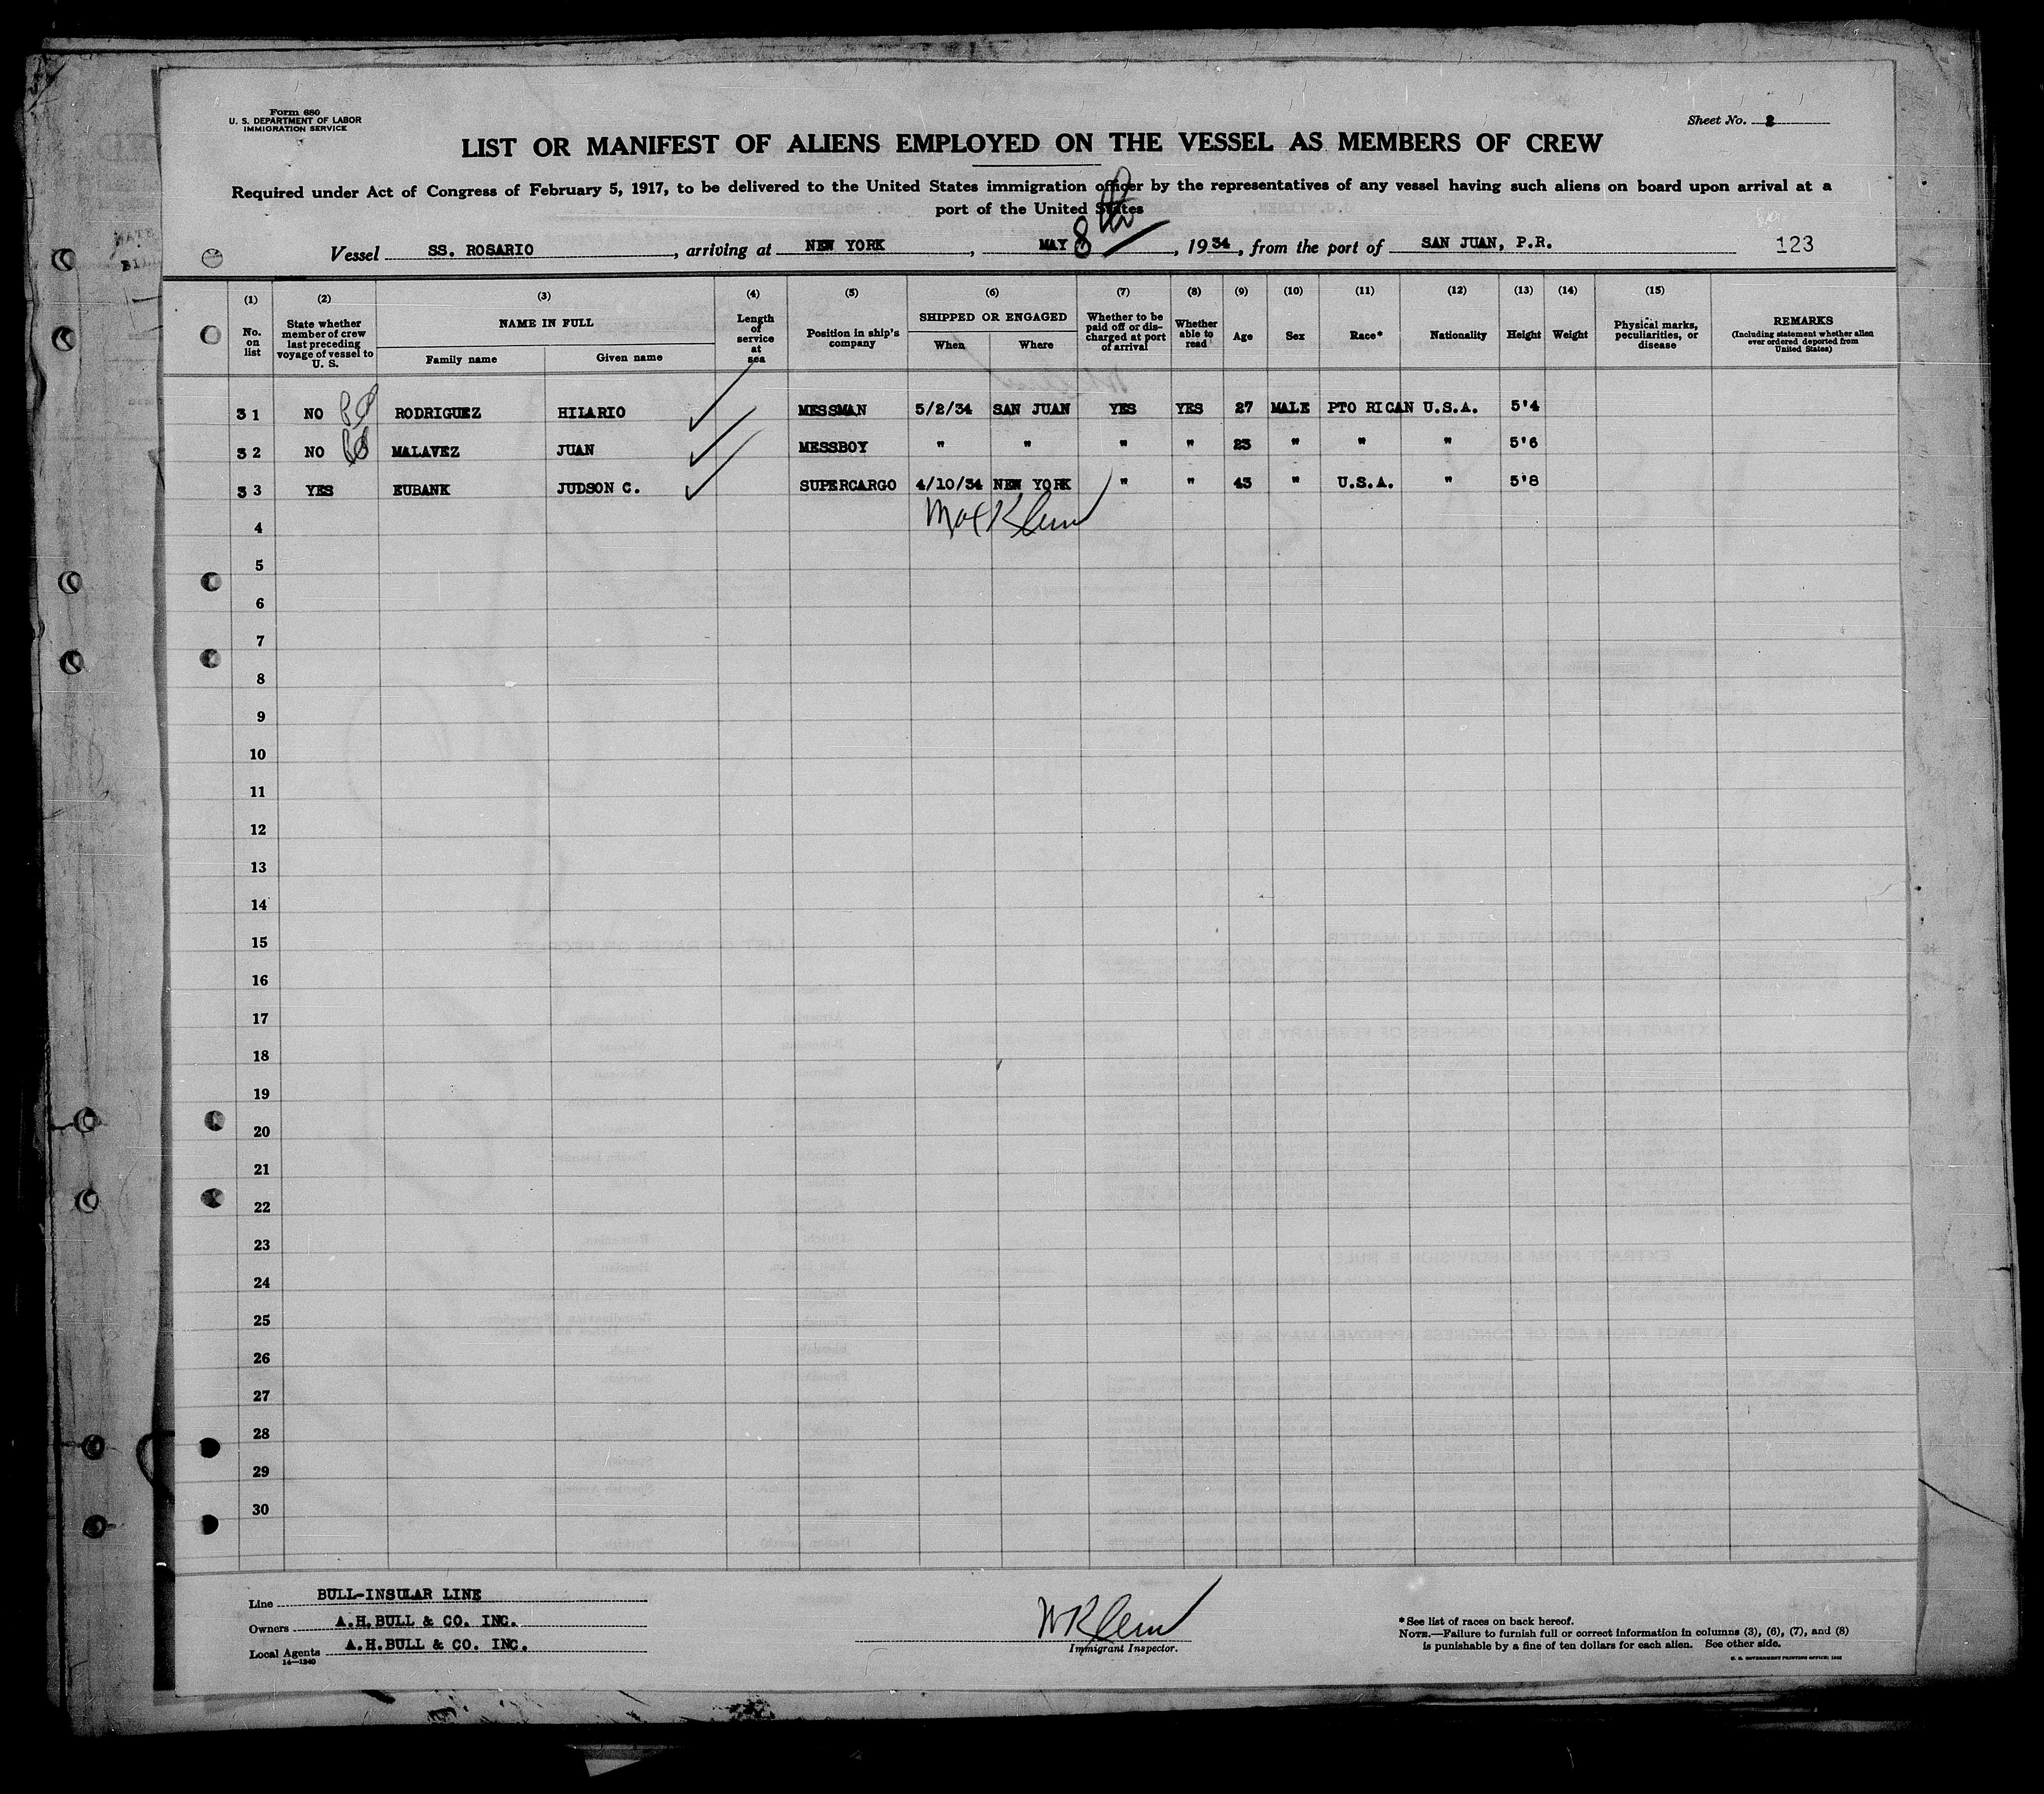 Form 680
U. S. DEPARTMENT OF LABOR
IMMIGRATION SERVICE
Sheet No. 2
LIST OR MANIFEST OF ALIENS EMPLOYED ON THE VESSEL AS MEMBERS OF CREW
Required under Act of Congress of February 5, 1917, to be delivered to the United States immigration officer by the representatives of any vessel having such aliens on board upon arrival at a
port of the United States
Vessel SS. ROSARIO, arriving at NEW YORK, MAY 8th, 1934, from the port of SAN JUAN, P.R. 123
(1) (2) (3) (4) (5) (6) (7) (8) (9) (10) (11) (12) (13) (14) (15)
No. on list State whether member of crew last preceding voyage of vessel to U. S. NAME IN FULL Family name Given name Length of service at sea Position in ship's company SHIPPED OR ENGAGED When Where Whether to be paid off or discharged at port of arrival Whether able to read Age Sex Race* Nationality Height Weight Physical marks, peculiarities, or disease REMARKS (Including statement whether alien ever ordered deported from United States)
31 NO RODRIGUEZ HILARIO MESSMAN 5/2/34 SAN JUAN YES YES 27 MALE PTO RICAN U.S.A. 5'4
32 NO MALAVEZ JUAN MESSBOY " " " " 23 " " " 5'6
33 YES EUBANK JUDSON C. SUPERCARGO 4/10/34 NEW YORK " " 43 " U.S.A. " 5'8
4 Max Klein
5
6
7
8
9
10
11
12
13
14
15
16
17
18
19
20
21
22
23
24
25
26
27
28
29
30
Line BULL-INSULAR LINE
Owners A.H.BULL & CO. INC.
Local Agents A.H.BULL & CO. INC.
14—1240
Klein
Immigrant Inspector.
*See list of races on back hereof.
NOTE.—Failure to furnish full or correct information in columns (3), (6), (7), and (8)
is punishable by a fine of ten dollars for each alien. See other side.
U. S. GOVERNMENT PRINTING OFFICE: 1932